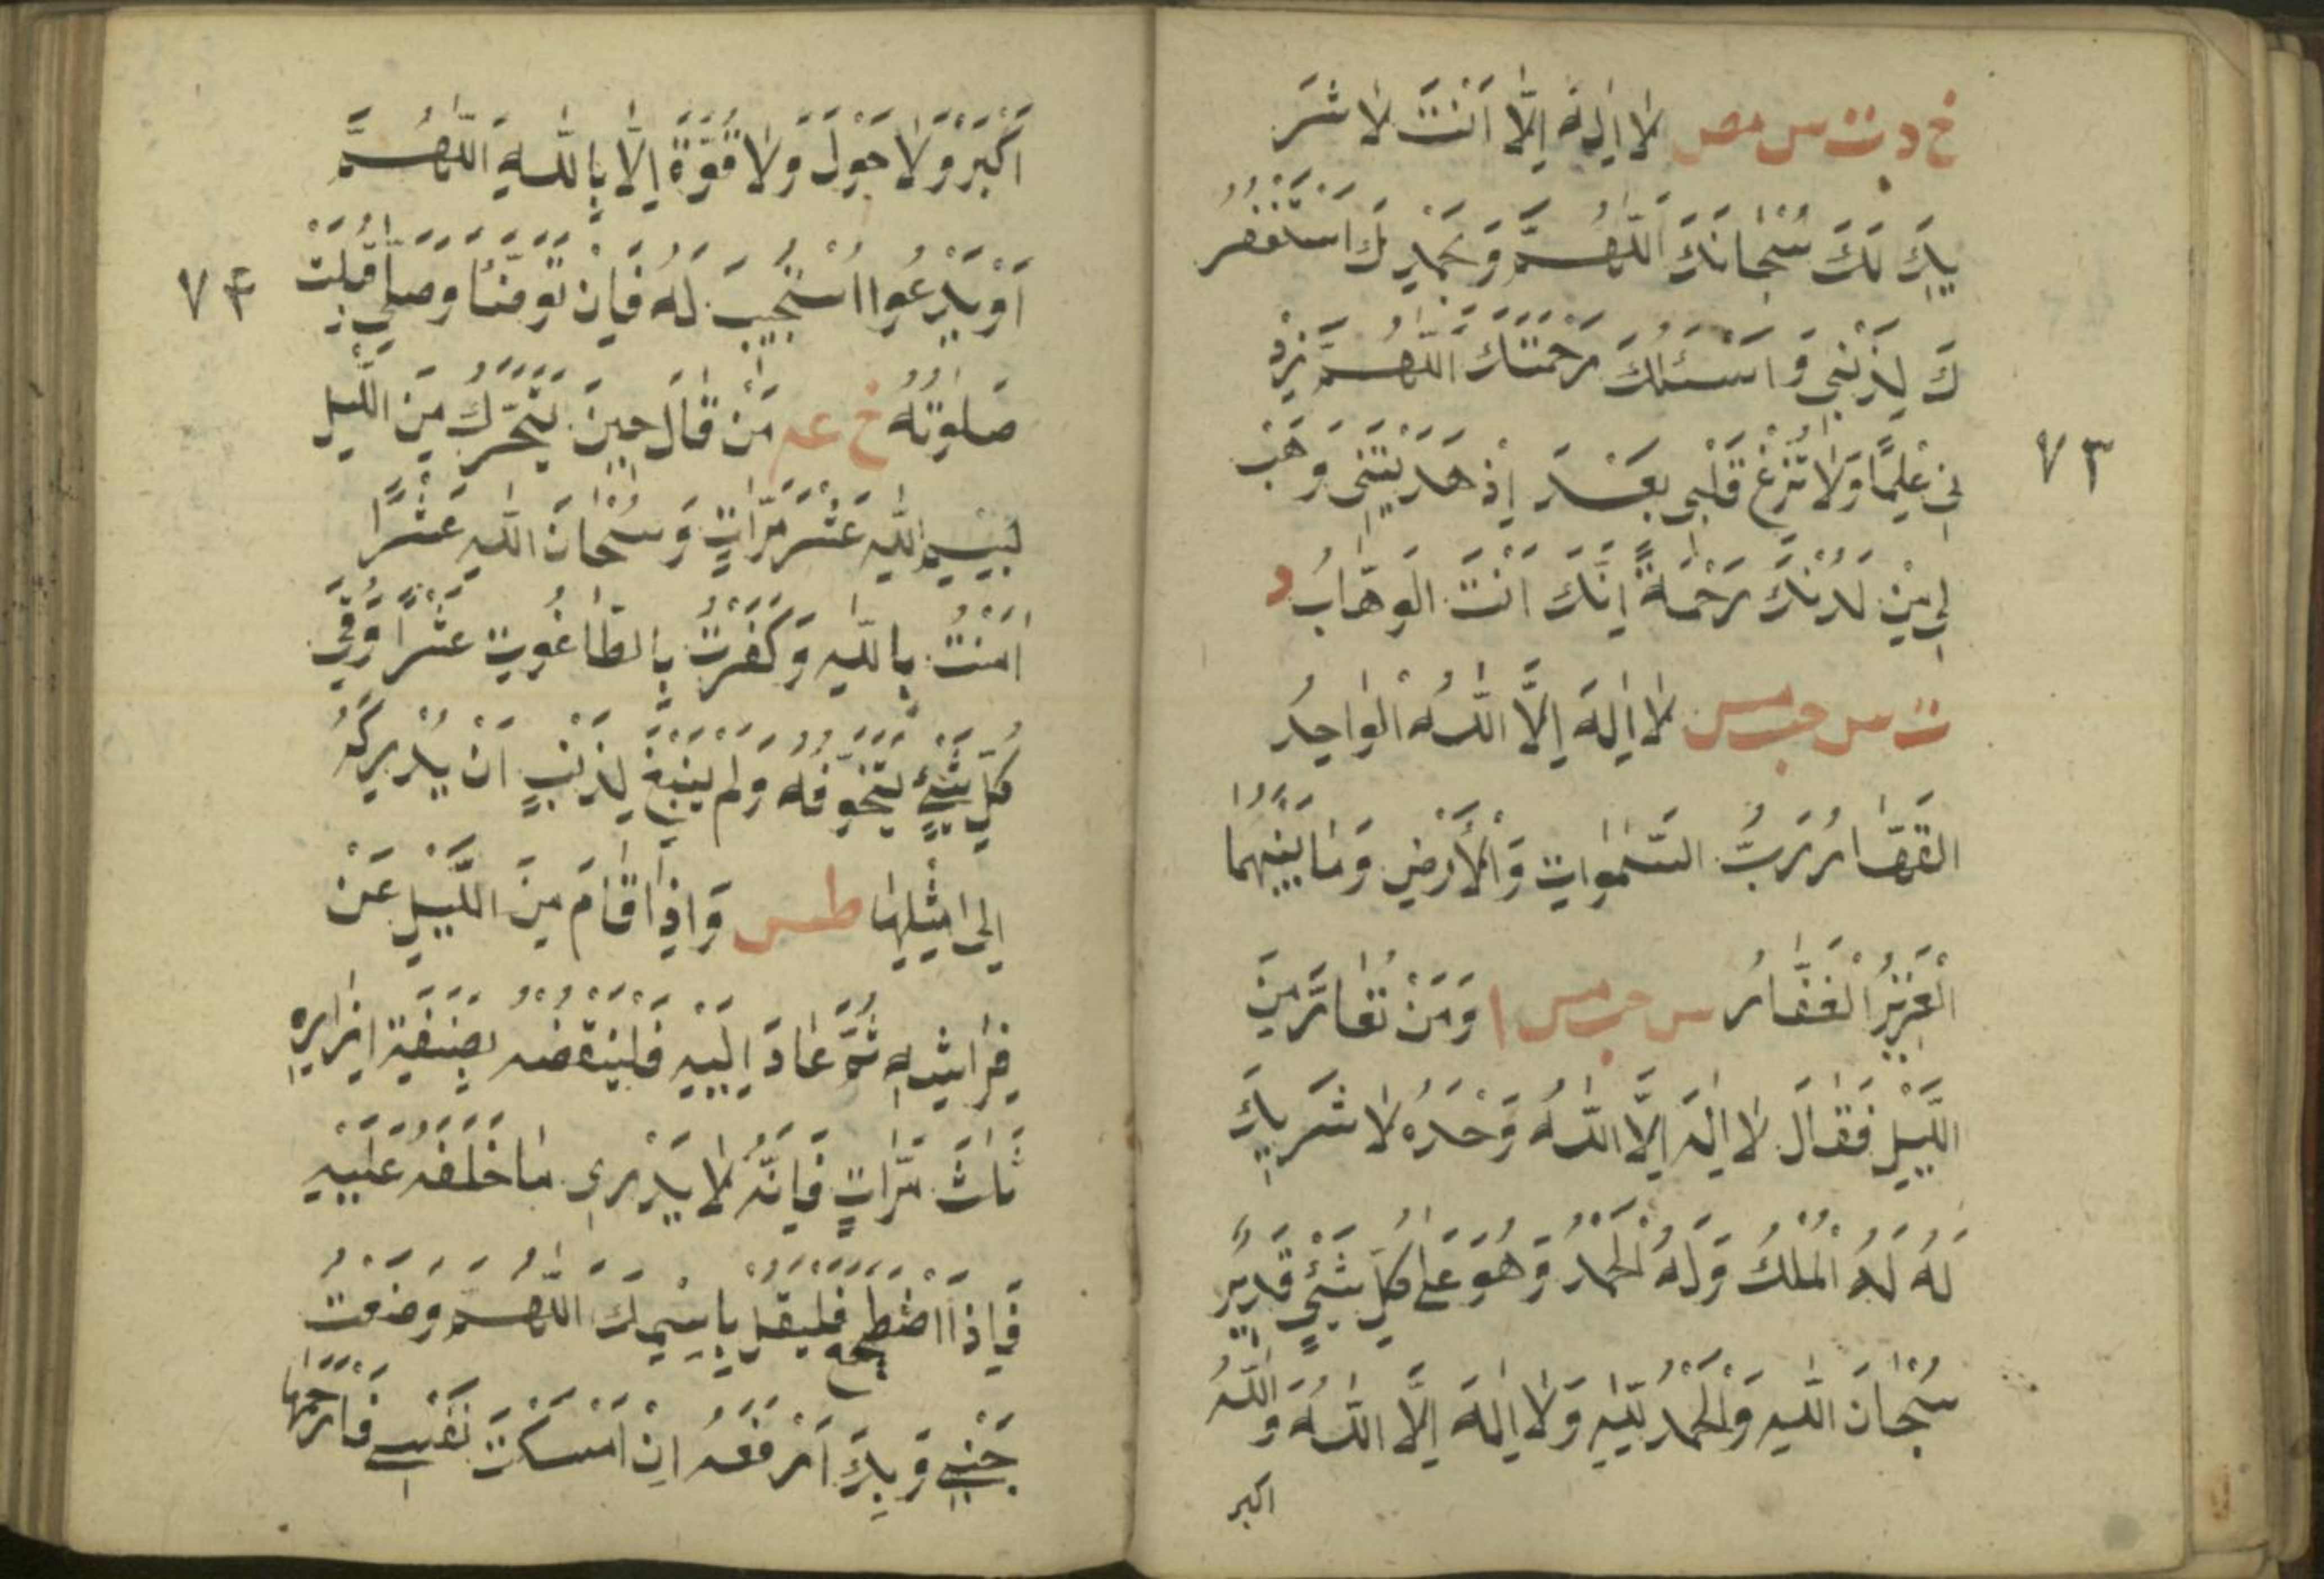 خ د ت س مص لَا اِلٰهَ اِلَّا اَنْتَ لَا شَرِ
يكَ لَكَ سُبْحَانَكَ اَللّٰهُمَّ وَبِحَمْدِكَ اَسْتَغْفِرُ
كَ لِذَنْبِي وَاَسْئَلُكَ رَحْمَتَكَ اَللّٰهُمَّ زِدْ
نِي عِلْمًا وَلَا تُزِغْ قَلْبِي بَعْدَ اِذْ هَدَيْتَنِي وَهَبْ
٧٣
لِي مِنْ لَدُنْكَ رَحْمَةً اِنَّكَ اَنْتَ الْوَهَّابُ د
ت س حب مس لَا اِلٰهَ اِلَّا اللّٰهُ الْوَاحِدُ
الْقَهَّارُ رَبُّ السَّمٰوَاتِ وَالْاَرْضِ وَمَا بَيْنَهُمَا
الْعَزِيزُ الْغَفَّارُ س حب مس ا وَمَنْ تَعَارَّ مِنَ
اللَّيْلِ فَقَالَ لَا اِلٰهَ اِلَّا اللّٰهُ وَحْدَهُ لَا شَرِيكَ
لَهُ لَهُ الْمُلْكُ وَلَهُ الْحَمْدُ وَهُوَ عَلٰى كُلِّ شَيْءٍ قَدِيرٌ
سُبْحَانَ اللّٰهِ وَالْحَمْدُ لِلّٰهِ وَلَا اِلٰهَ اِلَّا اللّٰهُ وَاللّٰهُ
اكبر
اَكْبَرُ وَلَا حَوْلَ وَلَا قُوَّةَ اِلَّا بِاللّٰهِ اَللّٰهُمَّ
اَوْ يَدْعُوا اُسْتُجِيبَ لَهُ فَاِنْ تَوَضَّأَ وَصَلّٰى قُبِلَتْ
٧٤
صَلٰوتُهُ خ عه مَنْ قَالَ حِينَ يَتَحَرَّكُ مِنَ اللَّيْلِ
بِسْمِ اللّٰهِ عَشْرَ مَرَّاتٍ وَسُبْحَانَ اللّٰهِ عَشْرًا
اٰمَنْتُ بِاللّٰهِ وَكَفَرْتُ بِالطَّاغُوتِ عَشْرًا وُقِيَ
كُلَّ شَيْءٍ يَتَخَوَّفُهُ وَلَمْ يَنْبَغِ لِذَنْبٍ اَنْ يُدْرِكَهُ
اِلٰى مِثْلِهَا طس وَاِذَا قَامَ مِنَ اللَّيْلِ عَنْ
فِرَاشِهِ ثُمَّ عَادَ اِلَيْهِ فَلْيَنْفُضْهُ بِصَنِفَةِ اِزَارِهِ
ثَلَاثَ مَرَّاتٍ فَاِنَّهُ لَا يَدْرِي مَا خَلَفَهُ عَلَيْهِ
فَاِذَا اضْطَجَعَ فَلْيَقُلْ بِاسْمِكَ اللّٰهُمَّ وَضَعْتُ
جَنْبِي وَبِكَ اَرْفَعُهُ اِنْ اَمْسَكْتَ نَفْسِي فَارْحَمْهَا